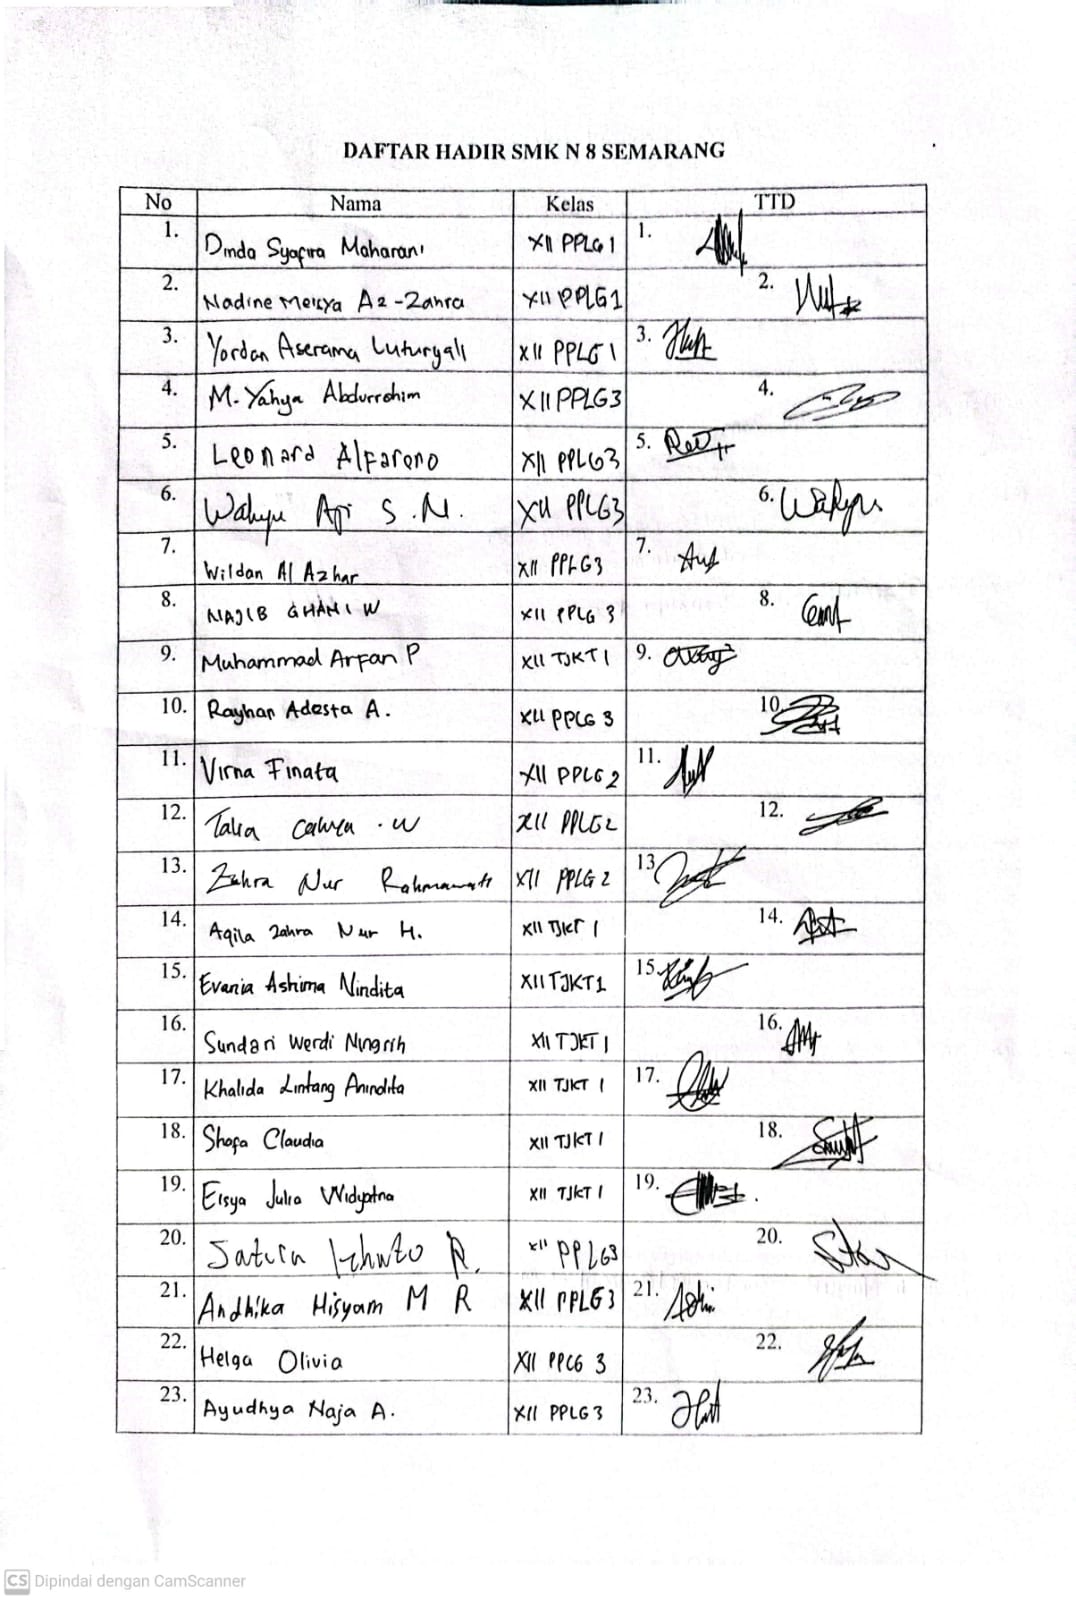 DAFTAR HADIR SMK N 8 SEMARANG
No Nama Kelas TTD
1. Dinda Syafira Maharani XII PPLG 1 1.
2. Nadine Meisya Az-Zahra XII PPLG 1 2.
3. Yordan Aserama Luturyali XII PPLG 1 3.
4. M. Yahya Abdurrohim XII PPLG3 4.
5. Leonard Alfareno XII PPLG3 5.
6. Wahyu Aji S.N. XII PPLG3 6. Wahyu
7. Wildan Al Azhar XII PPLG3 7.
8. NAJIB GHANI W XII PPLG 3 8.
9. Muhammad Arfan P XII TJKT 1 9.
10. Rayhan Adesta A. XII PPLG 3 10.
11. Virna Finata XII PPLG 2 11.
12. Talia Cahya . W XII PPLG2 12.
13. Zahra Nur Rahmawati XII PPLG 2 13
14. Aqila Zahra Nur H. XII TJKT 1 14.
15. Evania Ashima Nindita XII TJKT1 15.
16. Sundari Werdi Ningsih XII TJKT 1 16.
17. Khalida Lintang Anindita XII TJKT 1 17.
18. Shofa Claudia XII TJKT 1 18.
19. Eisya Julia Widyatna XII TJKT 1 19.
20. Satura R. XII PPLG3 20.
21. Andhika Hisyam M R XII PPLG3 21.
22. Helga Olivia XII PPLG 3 22.
23. Ayudhya Naja A. XII PPLG3 23.
CS Dipindai dengan CamScanner